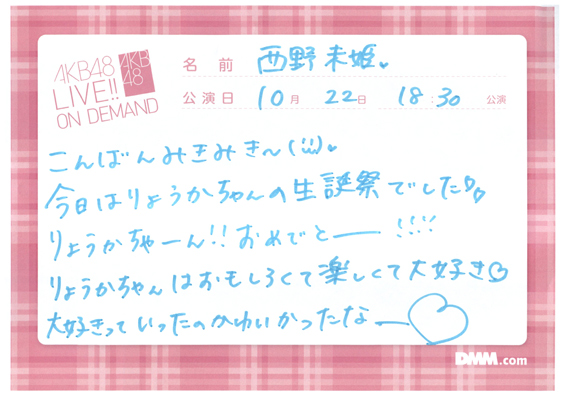 AKB48
LIVE!!
ON DEMAND
AKB
48
名前 西野未姫♥
公演日 10月 22日 18:30 公演
こんばんみきみきー(¨̮)♥
今日はりょうかちゃんの生誕祭でした♡♡
りょうかちゃーん!!おめでとー!!!!
りょうかちゃんはおもしろくて楽しくて大好き♡
大好きっていったのかわいかったなー♡
DMM.com